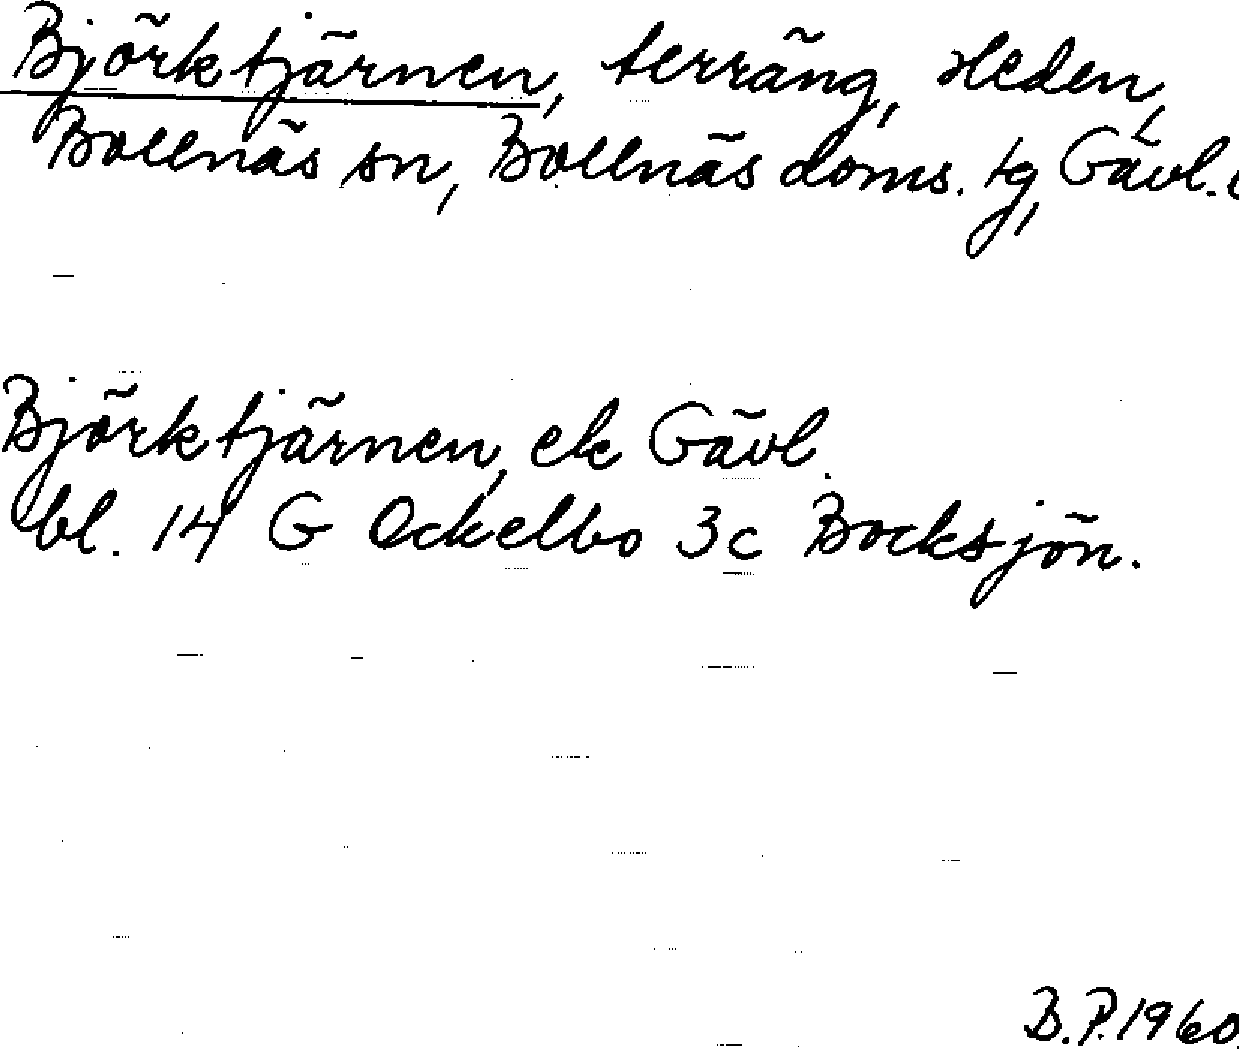 Björktjärnen, terräng, Heden,
Bollnäs sn, Bollnäs doms. tg, Gävl.
Björktjärnen, ek Gävl.
bl. 14 G Ockelbo 3c Bocksjön.
B.P. 1960.